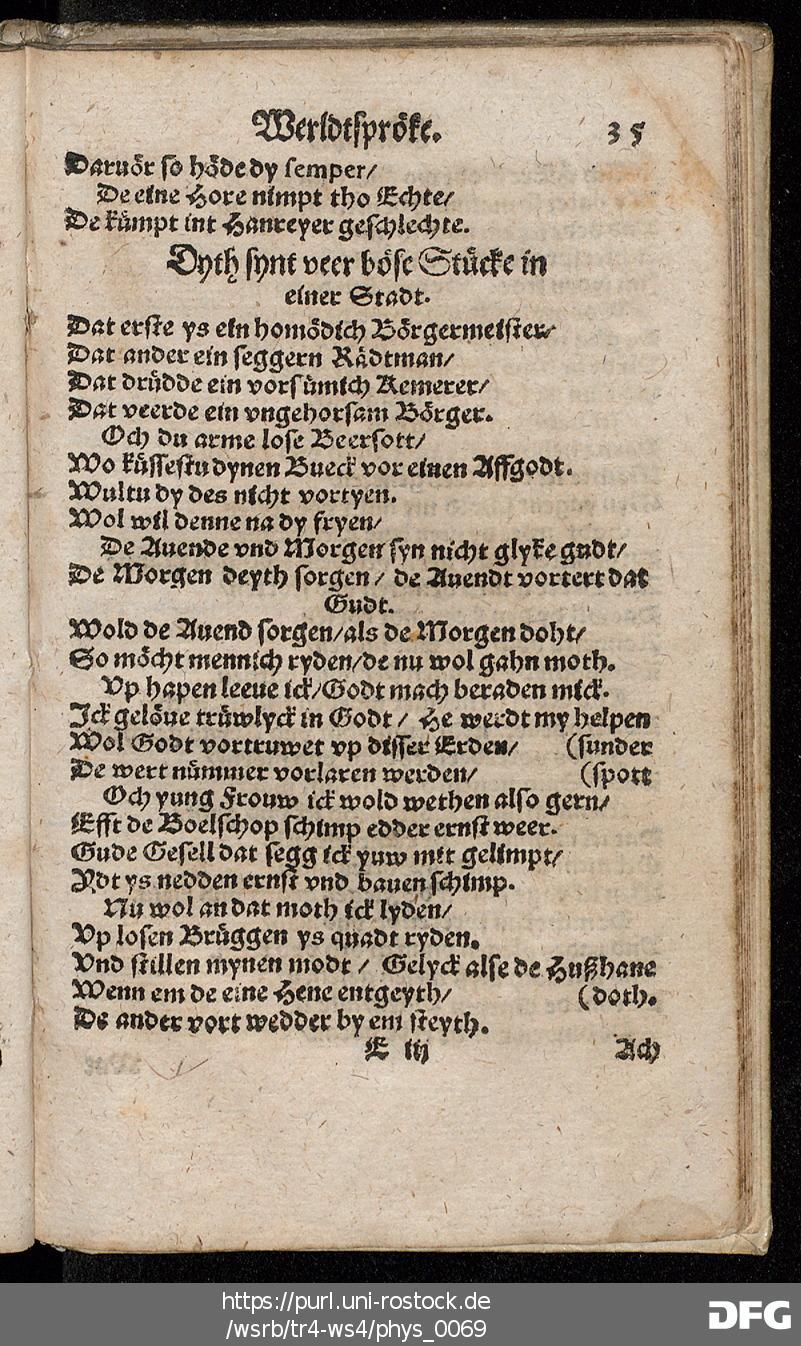 Werldtspröke. 35
Daruör so höde dy semper/
De eine Hore nimpt tho Echte/
De kümpt int Hanreyer geschlechte.
Dyth synt veer böse Stücke in
einer Stadt.
Dat erste ys ein homödich Börgermeister/
Dat ander ein seggern Rädtman/
Dat drüdde ein vorsümich Kemerer/
Dat veerde ein vngehorsam Börger.
Och du arme lose Beersott/
Wo küssestu dynen Bueck vor einen Affgodt.
Wultu dy des nicht vortyen.
Wol wil denne na dy fryen/
De Auende vnd Morgen syn nicht glyke gudt/
De Morgen deyth sorgen / de Auendt vortert dat
Gudt.
Wold de Auend sorgen/als de Morgen doht/
So möcht mennich ryden/de nu wol gahn moth.
Vp hapen leeue ick/Godt mach beraden mick.
Ick gelöue trüwlyck in Godt / He werdt my helpen
Wol Godt vortruwet vp disser Erden/ (sunder
De wert nümmer vorlaren werden/ (spott
Och yung Frouw ick wold wethen also gern/
Efft de Boelschop schimp edder ernst weer.
Gude Gesell dat segg ick yuw mit gelimpt/
Ydt ys nedden ernst vnd bauen schimp.
Nu wol an dat moth ick lyden/
Vp losen Brüggen ys quadt ryden.
Vnd stillen mynen modt / Gelyck alse de Hußhane
Wenn em de eine Hene entgeyth/ (doth.
De ander vort wedder by em steyth.
E iij Ach
https://purl.uni-rostock.de
/wsrb/tr4-ws4/phys_0069
DFG